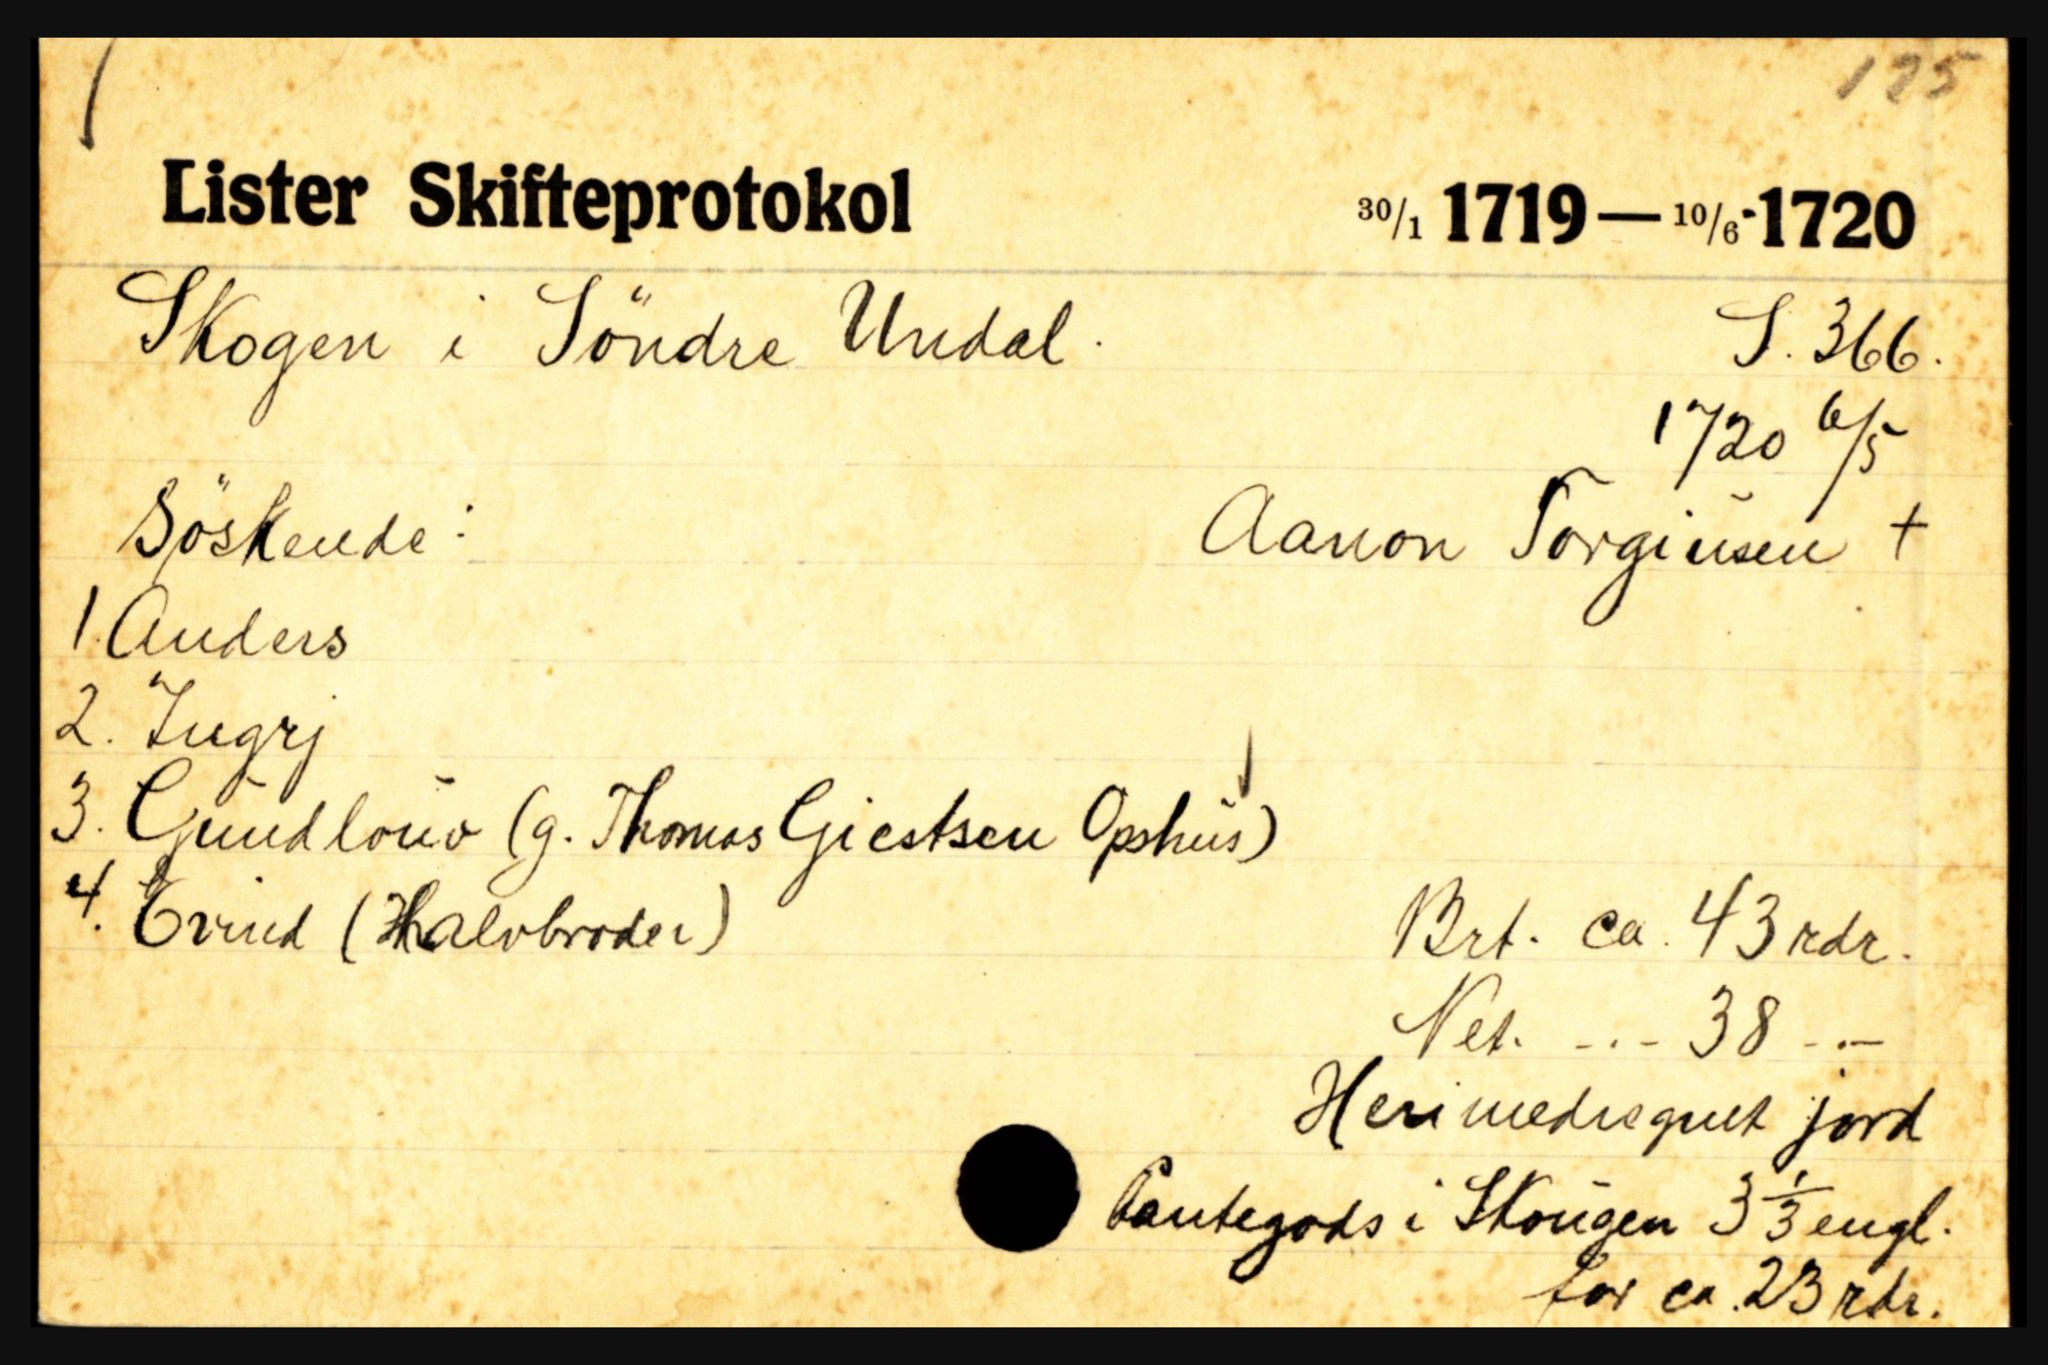 175
Lister Skifteprotokol 30/1 1719 — 10/6-1720
Skogen i Söndre Undal. S. 366.
1720 6/5
Söskende: Aanon Torgiusen +
1. Anders
2. Ingrj
3. Gundlouv (g. Thomas Giestsen Opshus)
4. Evind (Halvbroder) Brt. ca. 43 rdr.
Net. -.- 38 -.-
Heri medregnet jord
Pantegods i Skougen 3 1/3 engl.
for ca. 23 rdr.